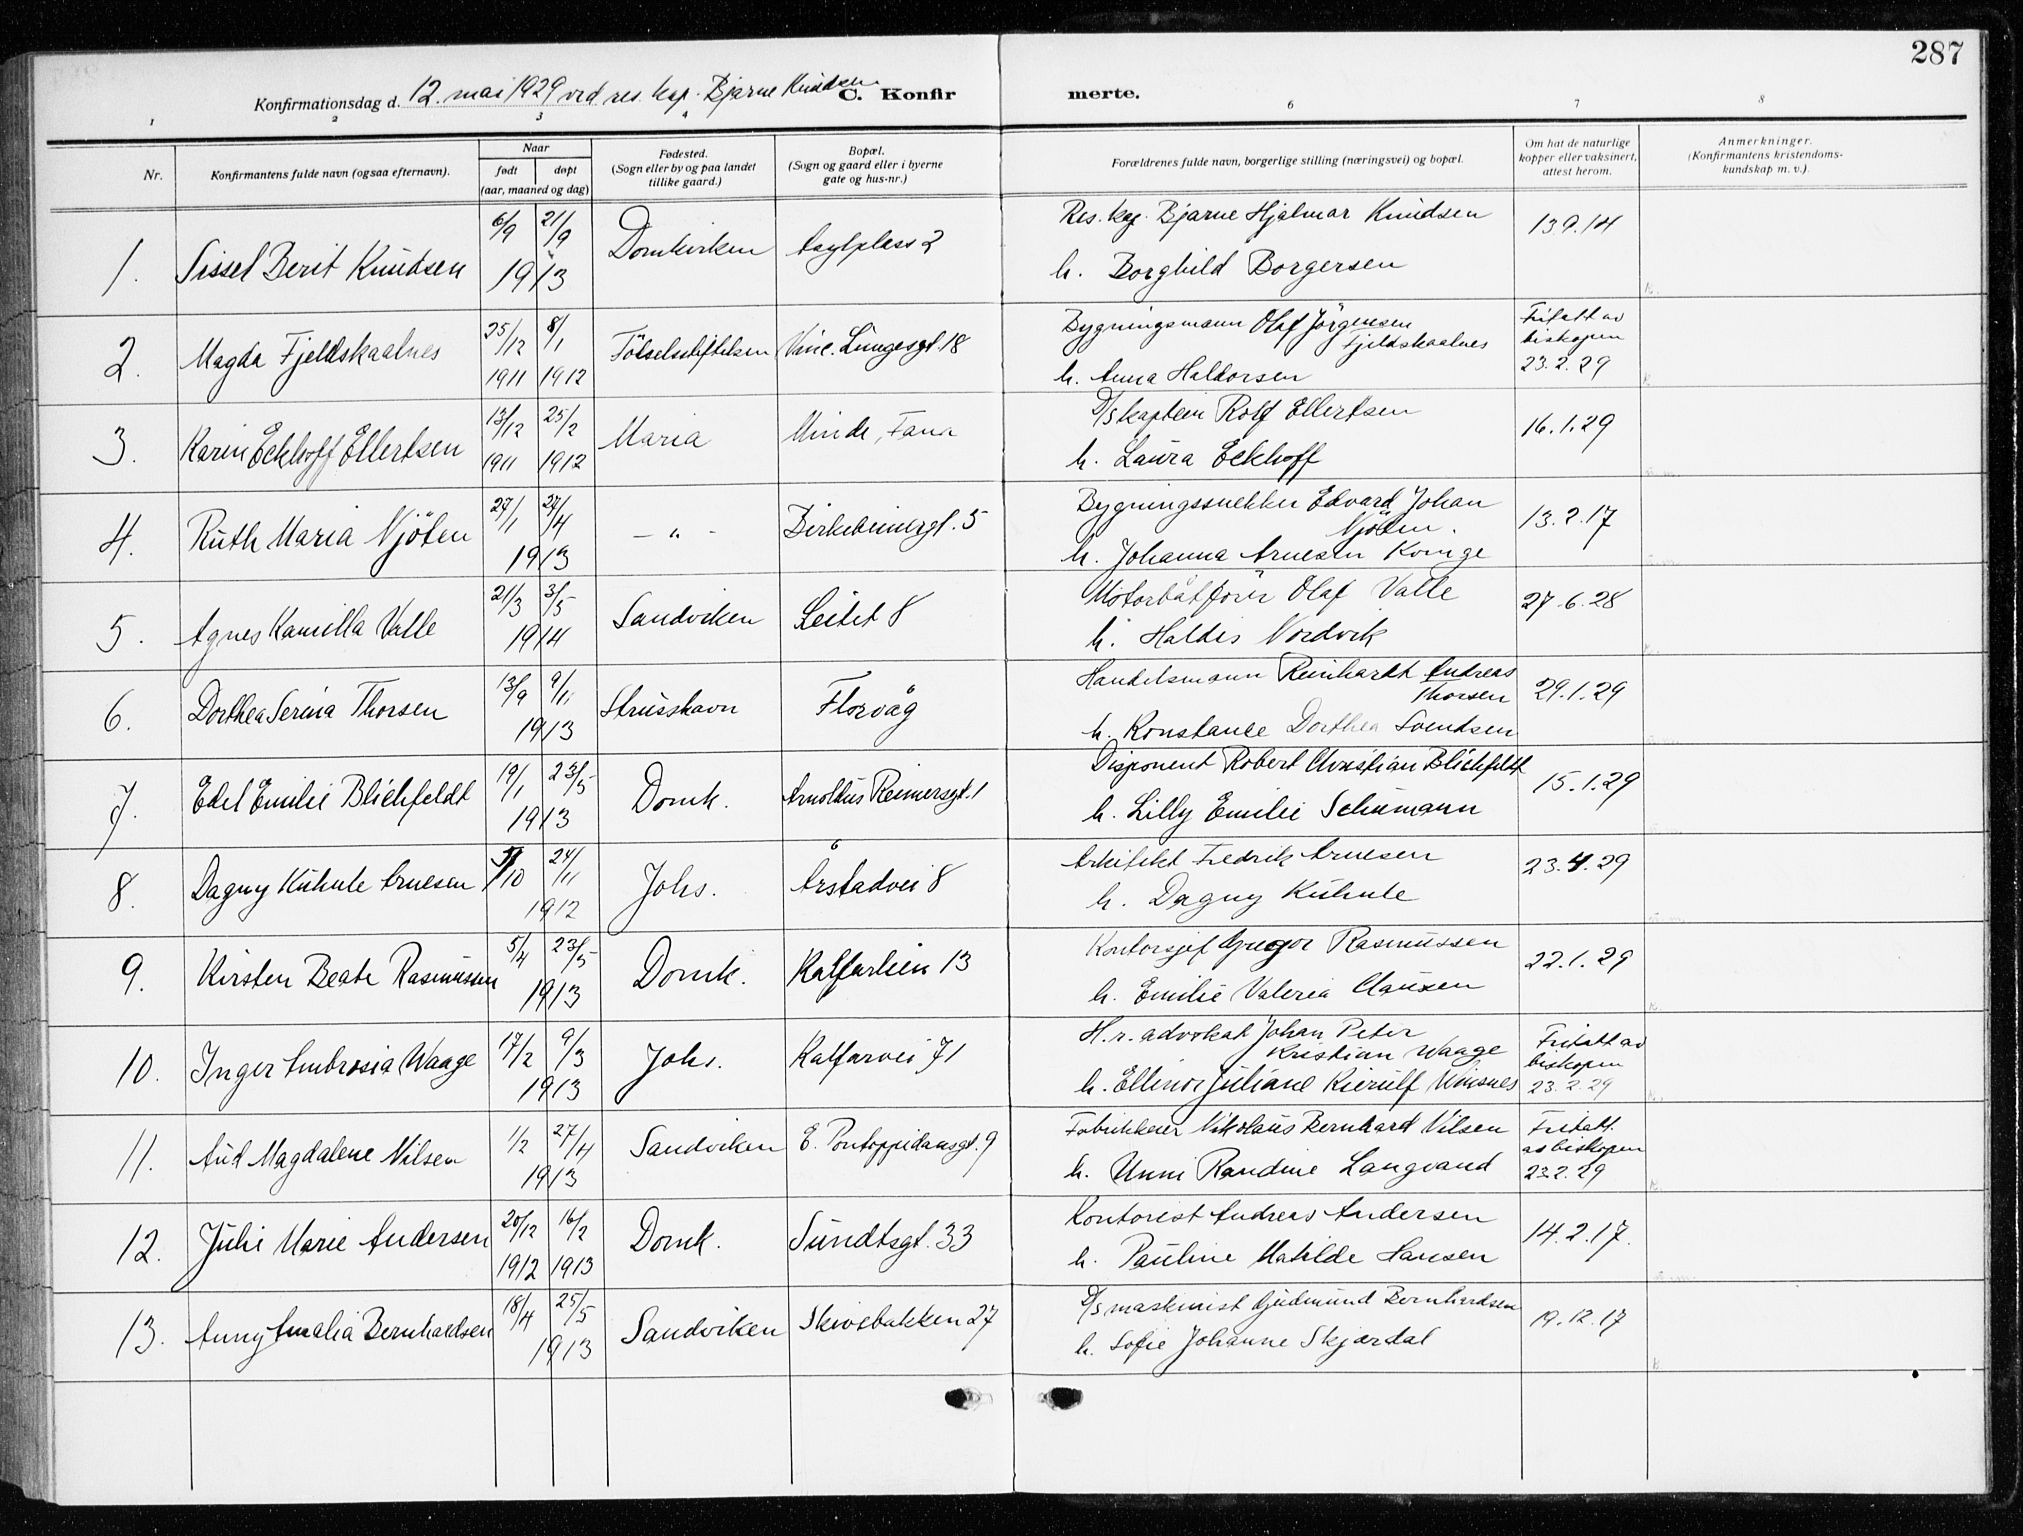 287
Konfirmationsdag d. 12. mai 1929 ved res. kap. Bjarne Knudsen C. Konfirmerte.
1 2 3 4 6 7 8
Nr. Konfirmantens fulde navn (ogsaa efternavn). Naar født døpt (aar, maaned og dag) Fødested. (Sogn eller by og paa landet tillike gaard.) Bopæl. (Sogn og gaard eller i byerne gate og hus-nr.) Forældrenes fulde navn, borgerlige stilling (næringsvei) og bopæl. Om hat de naturlige kopper eller vaksinert, attest herom. Anmerkninger. (Konfirmantens kristendomskundskap m. v.).
1. Sissel Berit Knudsen 6/9 21/9 1913 Domkirken Asylplass 2 Res. kap. Bjarne Hjalmar Knudsen 13.9.14
h. Borghild Borgersen
2. Magda Fjeldskaalnes 25/12 1911 8/1 1912 Fötselsstiftelsen Vinc. Lungesgt. 18 Bygningsmann Olaf Jörgensen Fjeldskaalnes Fritatt av biskopen 23.2.29
h. Anna Haldorsen
3. Karin Eckhoff Ellertsen 13/12 1911 25/2 1912 Maria Minde, Fana D/s kaptein Rolf Ellertsen 16.1.29
h. Laura Eckhoff
4. Ruth Maria Njöten 27/1 27/4 1913 — " - Birkebeinergt. 5 Bygningssnekker Edvard Johan Njöten. 13.2.17
h. Johanna Arnesen Kvinge
5. Agnes Kamilla Valle 21/3 3/5 1914 Sandviken Leitet 8 Motorbåtförer Olaf Valle 27.6.28
h. Haldis Nordvik
6. Dorthea Serina Thorsen 13/9 9/11 1913 Strusshavn Florvåg Handelsmann Reinhardt Andreas Thorsen 29.1.29
h. Konstance Dorthea Svendsen
7. Edel Emilie Blichfeldt 19/1 23/5 1913 Domk. Arnoldus Reimersgt. 1 Disponent Robert Christian Blichfeldt 15.1.29
h. Lilly Emilie Schumann
8. Dagny Kuhnle Arnesen /10 24/11 1912 Johs. Årstadvei 8 Arkitekt Fredrik Arnesen 23.4.29
h. Dagny Kuhnle
9. Kirsten Beate Rasmussen 5/4 23/5 1913 Domk. Kalfarlien 13 Kontorsjef Gregor Rasmussen 22.1.29
h. Emilie Valeria Clausen
10. Inger Ambrosia Waage 17/2 9/3 1913 Johs. Kalfarvei 71 H.r. advokat Johan Peter Kristian Waage Fritatt av biskopen 23.2.29
h. Ellinor Juliane Kierulf Winsnes
11. Aud Magdalene Nilsen 1/2 27/4 1913 Sandviken E. Pontoppidansgt. 9 Fabrikkeier Nikolaus Bernhard Nilsen Fritatt av biskopen 23.2.29
h. Unni Randine Langvand
12. Julie Marie Andersen 20/12 1912 16/2 1913 Domk. Sundtsgt. 33 Kontorist Andreas Andersen 14.2.17.
h. Pauline Matilde Hansen
13. Anny Amalia Bernhardsen 18/4 25/5 1913 Sandviken Skivebakken 27 D/s maskinist Gudmund Bernhardsen 19.12.17
h. Sofie Johanne Skjærdal